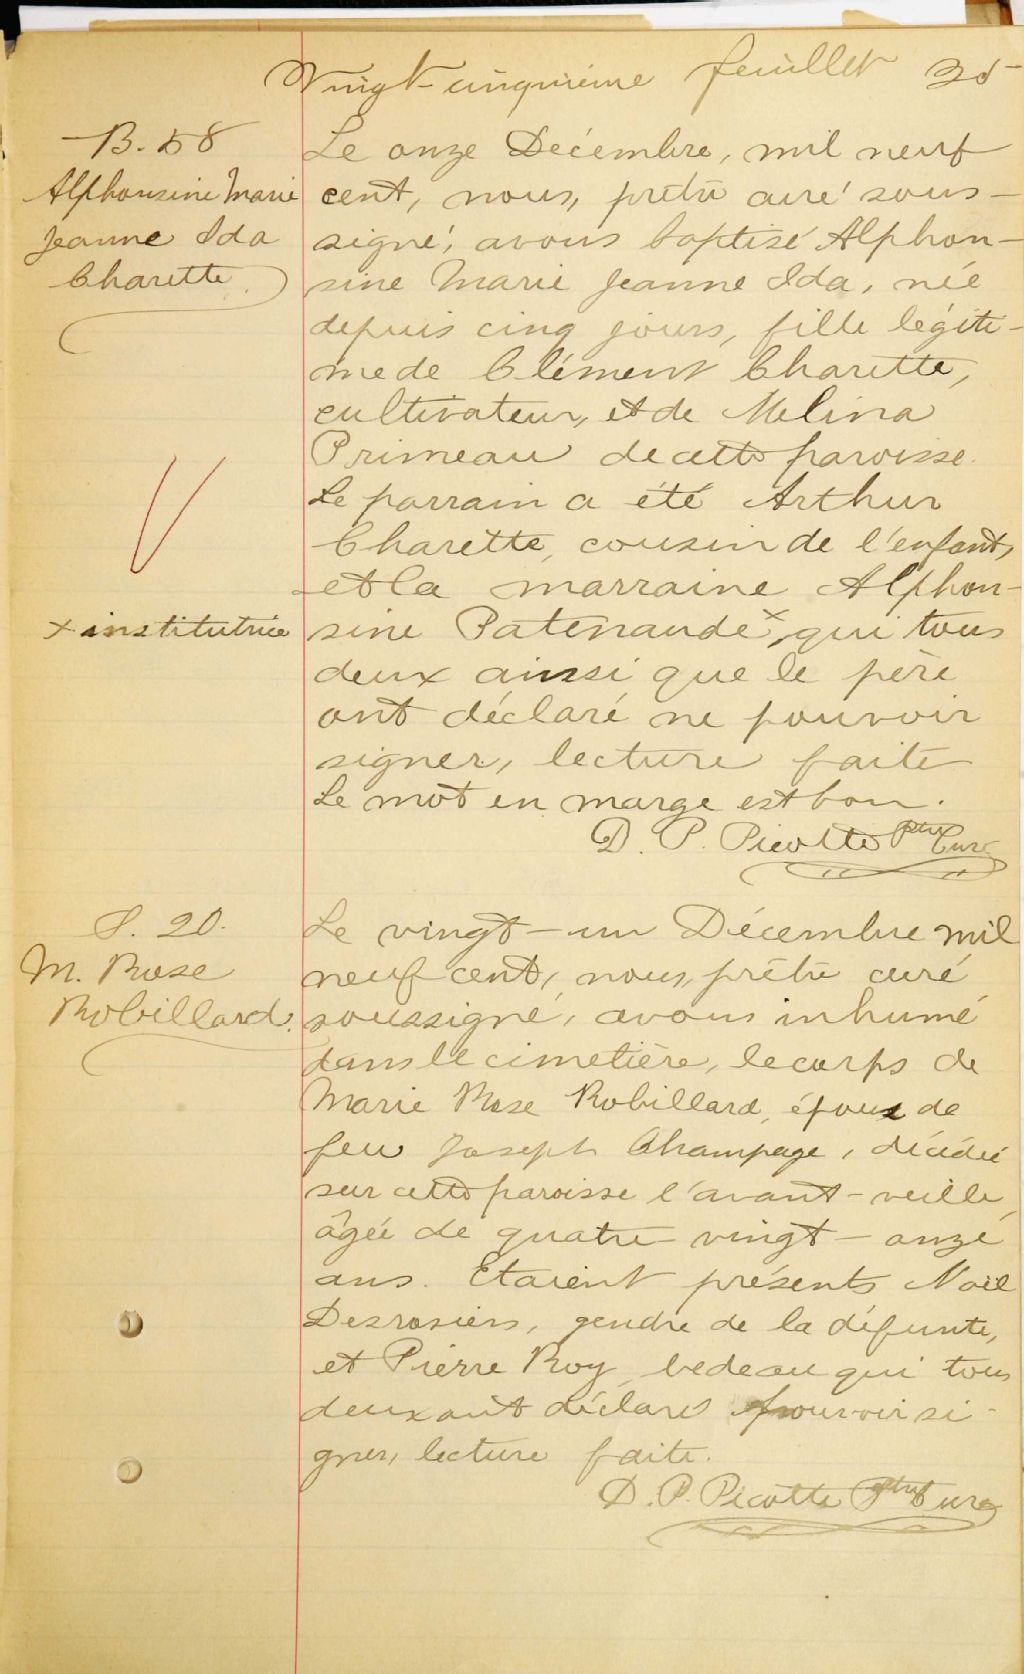 Vingt-cinquième feuillet 25
B. 58
Alphonsine Marie
Jeanne Ida
Charette
Le onze Décembre, mil neuf
cent, nous, prêtre curé sous-
signé, avons baptisé Alphon-
sine Marie Jeanne Ida, née
depuis cinq jours, fille légiti-
me de Clément Charette,
cultivateur, et de Melina
Primeau de cette paroisse.
Le parrain a été Arthur
Charette, cousin de l'enfant,
et la marraine Alphon-
x institutrice
sine Patenaude x, qui tous
deux ainsi que le père
ont déclaré ne pouvoir
signer, lecture faite
Le mot en marge est bon.
D. P. Picotte Ptre Curé
S. 20.
M. Rose
Robillard.
Le vingt-un Décembre mil
neuf cent, nous, prêtre curé
soussigné, avons inhumé
dans le cimetière, le corps de
Marie Rose Robillard, épouse de
feu Joseph Champage, décédée
sur cette paroisse l'avant-veille,
âgée de quatre vingt-onze
ans. Etaient présents Noël
Desrosiers, gendre de la défunte,
et Pierre Roy, bedeau qui tous
deux ont déclaré pouvoir si-
gner, lecture faite.
D. P. Picotte Ptre Curé